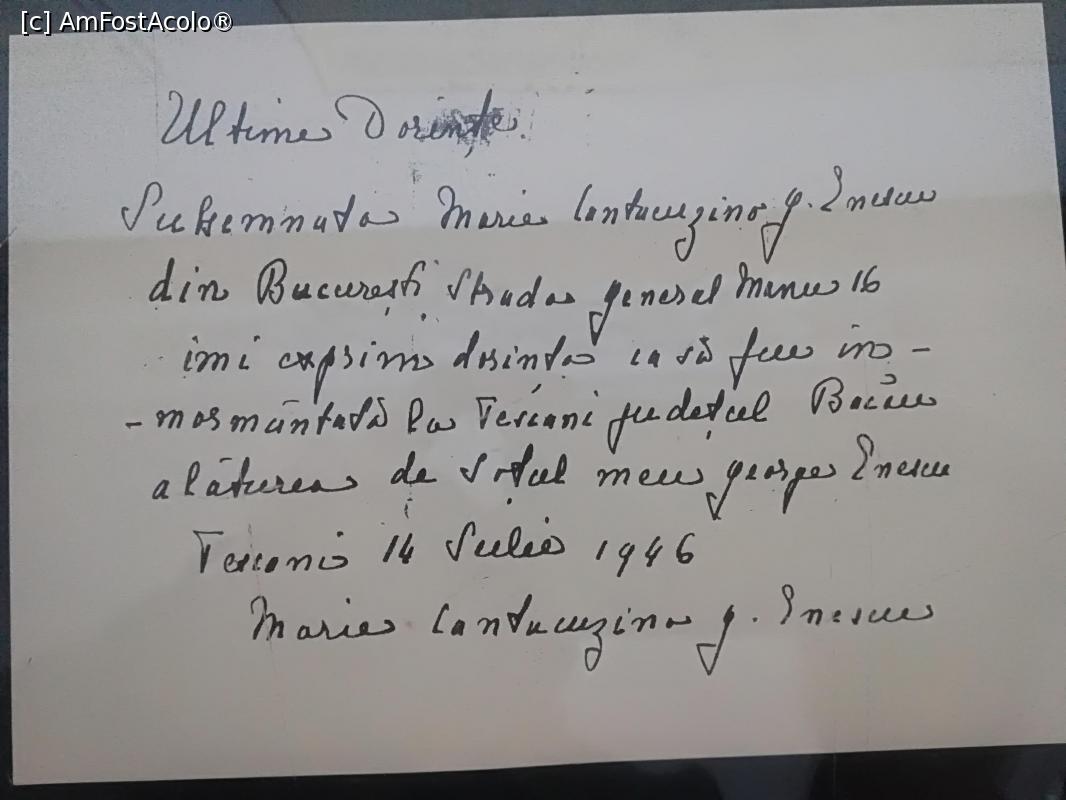 [c] AmFostAcolo®
Ultime Dorințe.
Subsemnata Maria Cantacuzino g. Enescu
din București Strada general Manu 16
imi exprim dorința ca să fiu in-
-mormântată la Tescani județul Bacău
alăturea de soțul meu george Enescu
Tescani 14 Iulie 1946
Maria Cantacuzino g. Enescu